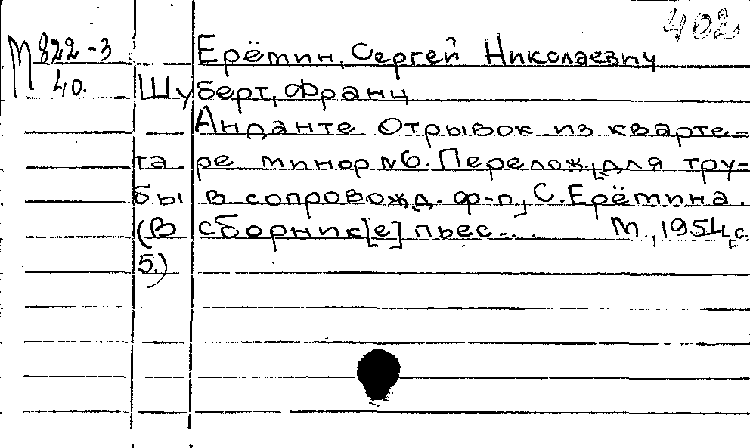 402
М 822-3
40.
Ерёмин, Сергей Николаевич
Шуберт, Франц
Анданте Отрывок из кварте-
та ре минор №6. Перелож. для тру-
бы в сопровожд. ф-п., С. Ерёмина.
(В сборник[е] пьес... М., 1954, с.
5.)